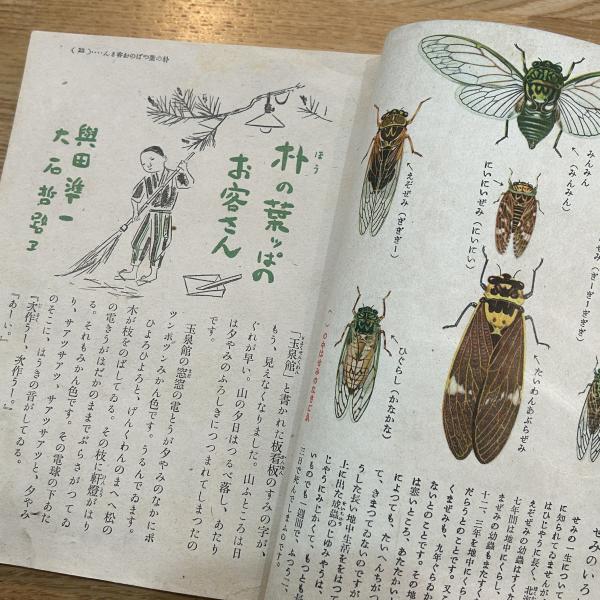 朴の葉ッぱの
お客さん
與田凖一
大石哲路
「玉泉館」と書かれた板看板のすみの字が、
もう、見えなくなりました。山ふところは日
ぐれが早い。山の夕日はつるべ落し、あたり
は夕やみのふろしきにつつまれてしまつたの
です。
玉泉館の窓窓の電とうが夕やみのなかにポ
ツンポツンみかん色です。うるんでゐます。
ひよろひよろと、げんくわんのまへへ松の
木が枝をのばしてゐる。その枝に軒燈がはり
の電きうがはだかのままでぶらさがつてゐ
る。それもみかん色です。その電球の下あた
り、サアツサアツ、サアツサアツと、夕やみ
のそこに、はうきの音がしてゐる。
「次作うー、次作うー。」
「あーい。」
みんみん
(みんみん)
えぞぜみ(ぎぎぎー)
にいにいぜみ(にいにい)
ひぐらし(かなかな)
たいわんあぶらぜみ
せみのいろ
せみの一生について
に知られてゐませんが
はひじやうに長く、北
えぞぜみの幼蟲は、す
七年間は地中にくらし
せみの幼蟲もまたすく
十二、三年を地中にくら
だらうとのことです。又こ
くまぜみも、九年ぐらゐか
ないとのことです。
は寒いところ、あたたかい
によつても、たいへんちがつ
て、きまつてゐないのですが
うした長い地中生活をはつて
上に出た成蟲のじゆみやうは、
じやうにみじかくて、もつとも長
いものでも二週間で、ふつう二、
三日で死んでしまふのです。